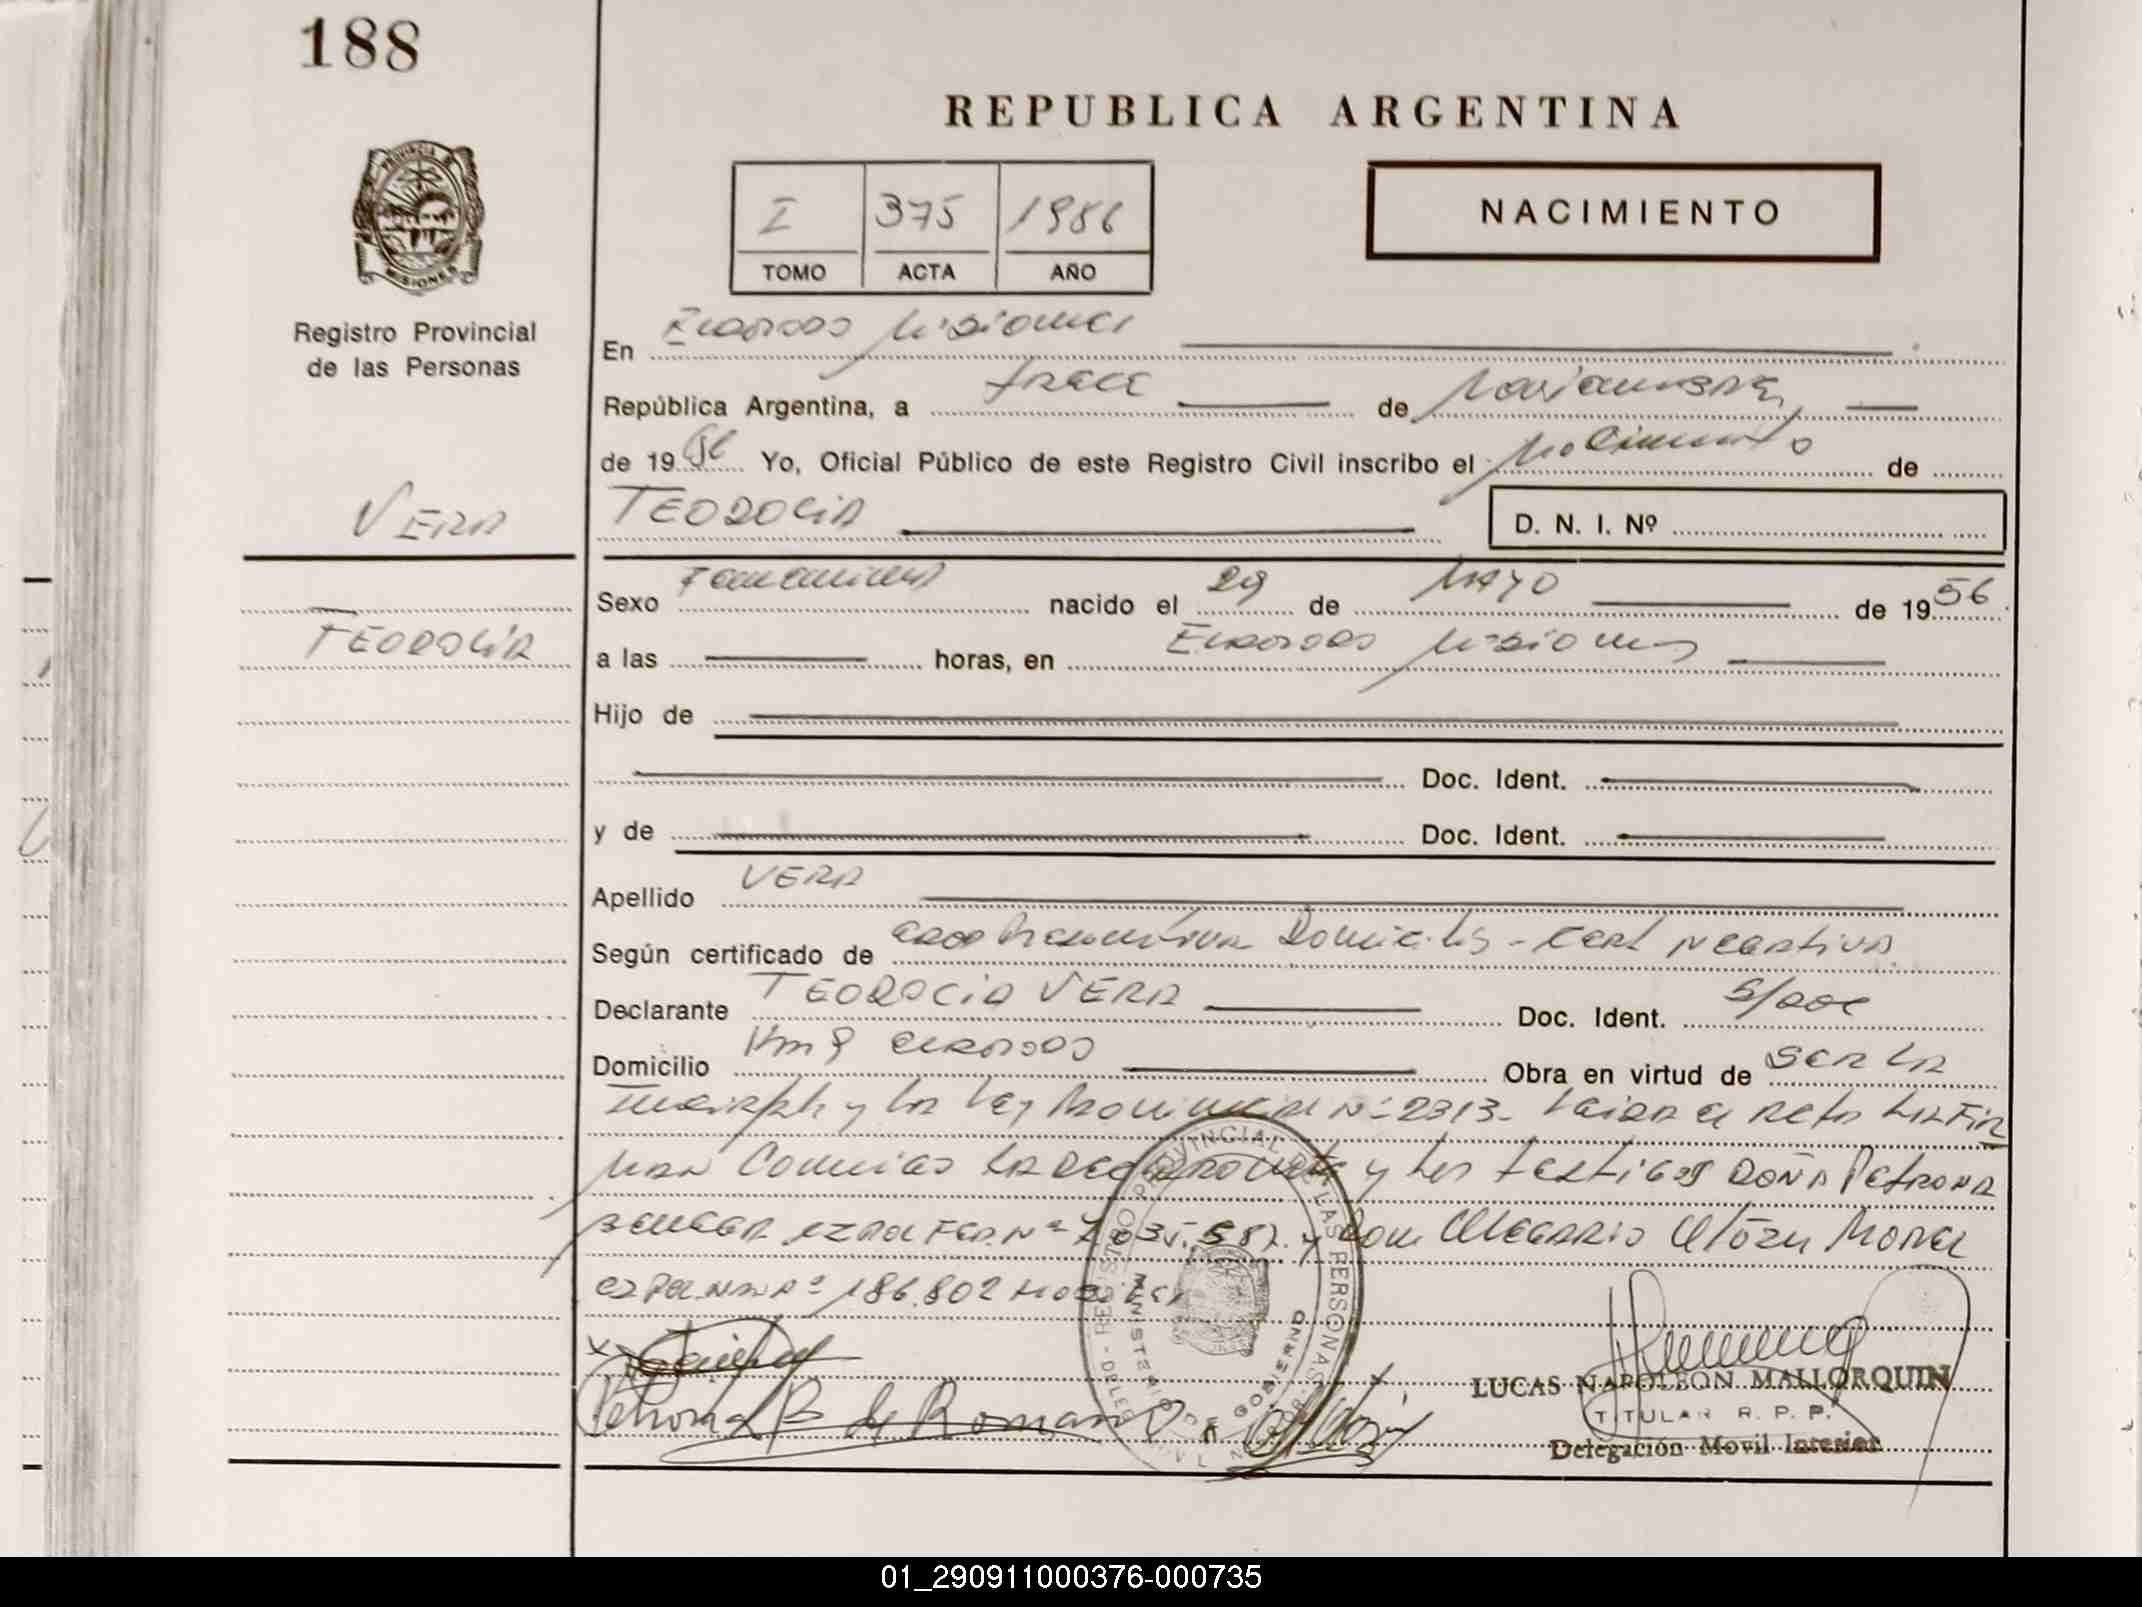 188
REPUBLICA ARGENTINA
I 375 1986
TOMO ACTA AÑO
NACIMIENTO
PROVINCIA DE MISIONES
Registro Provincial
de las Personas
En Eldorado Misiones
República Argentina, a trece de Noviembre
de 1986 Yo, Oficial Público de este Registro Civil inscribo el Nacimiento de
VERA
TEODOCIA
D. N. I. Nº
Sexo Femenino nacido el 29 de MAYO de 1956
TEODOCIA
a las horas, en Eldorado Misiones
Hijo de
Doc. Ident.
y de Doc. Ident.
Apellido VERA
Según certificado de Domicilio - Cert negativa
Declarante TEODOCIA VERA Doc. Ident. S/doc
Domicilio Km 9 Eldorado Obra en virtud de ser la
y la Ley Provincial Nº 2313- Leida el Acta la Fir
man Conmigo la declarante y los testigos DOÑA Petrona
y Don Mora
Nº 186.802
Petrona B de Romano
REGISTRO PROVINCIAL DE LAS PERSONAS
MINISTERIO DE GOBIERNO
LUCAS NAPOLEON MALLORQUIN
TITULAR R. P. P.
Delegación Movil Interior
01_290911000376-000735